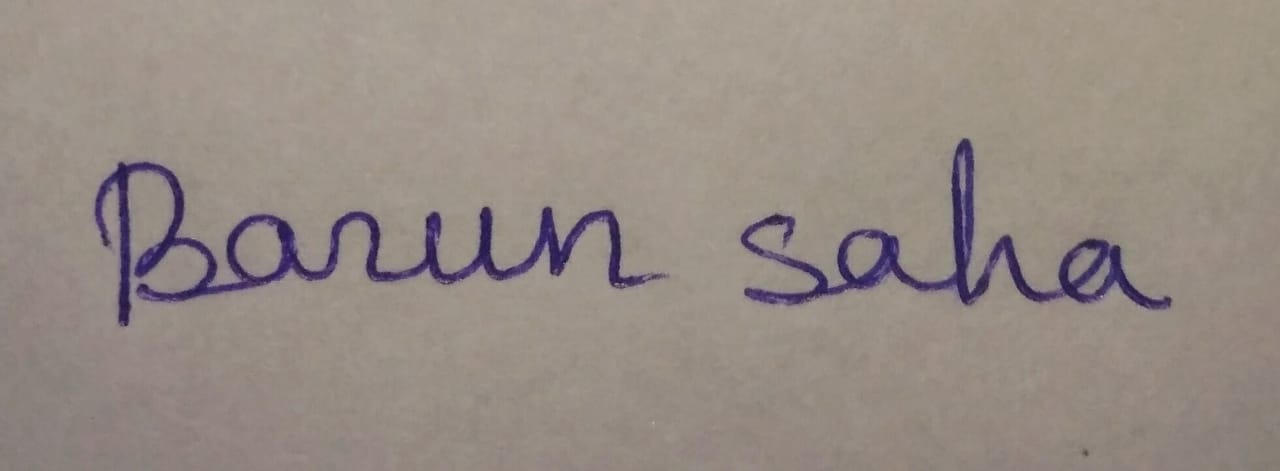 Barun saha